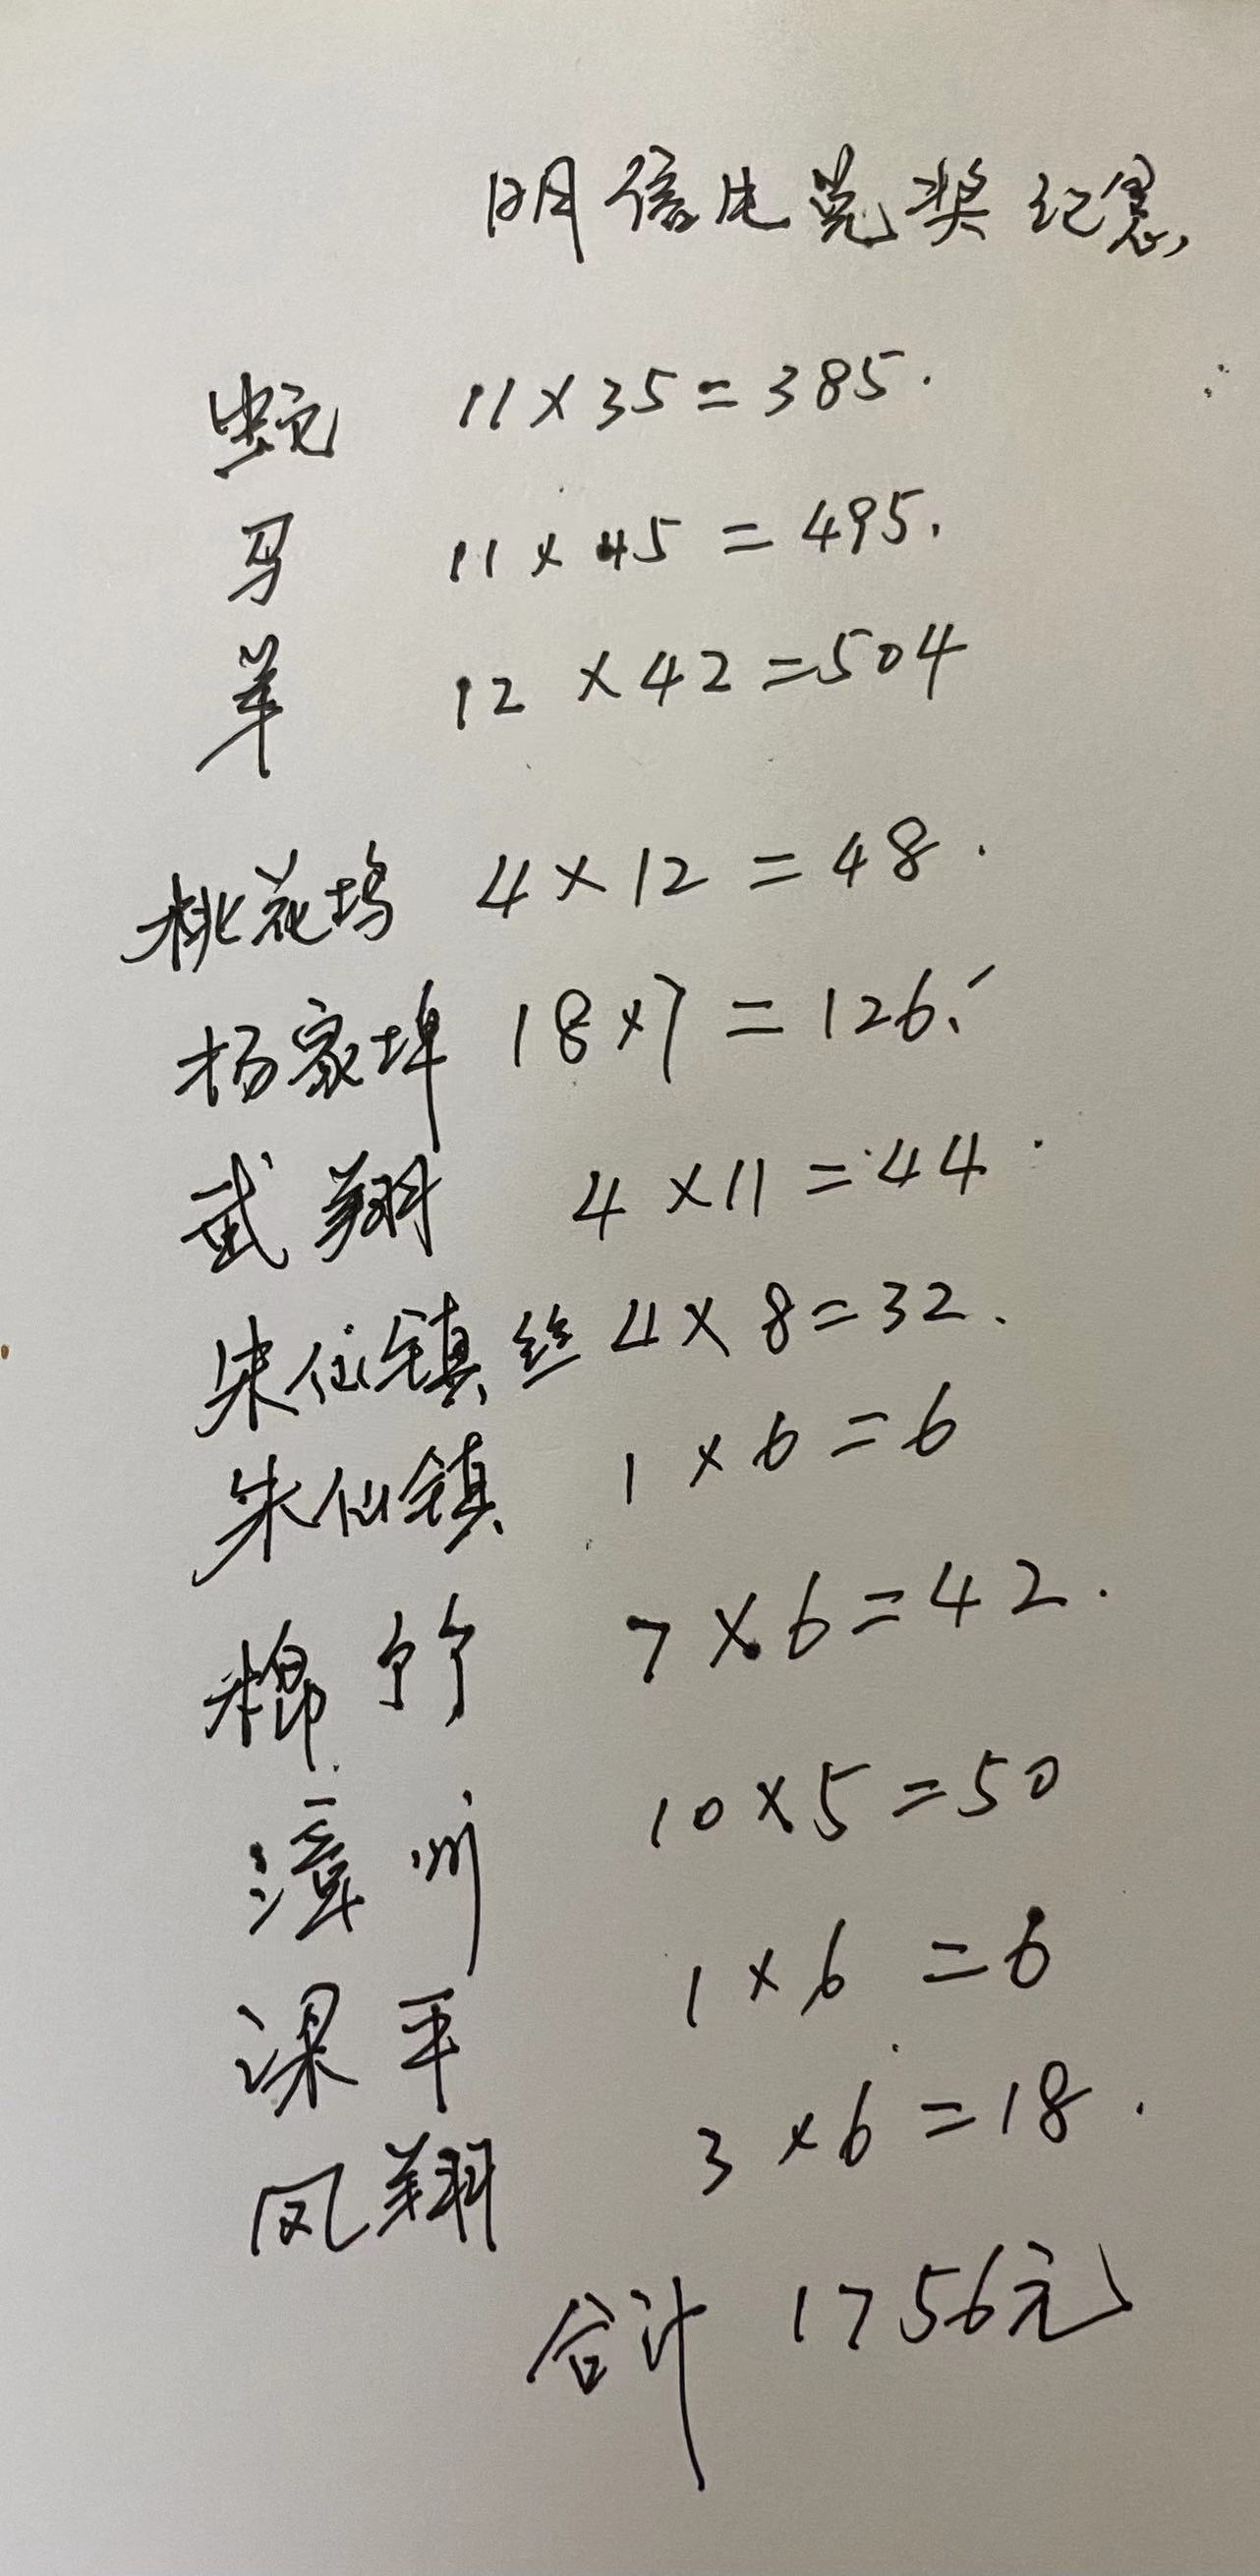 明信片兑奖纪念
蛇 11×35=385.
马 11×45=495.
羊 12×42=504
桃花坞 4×12=48.
杨家埠 18×7=126.
武翔 4×11=44.
朱仙镇丝 4×8=32.
朱仙镇 1×6=6
棉竹 7×6=42.
漳州 10×5=50
梁平 1×6=6
凤翔 3×6=18.
合计 1756元